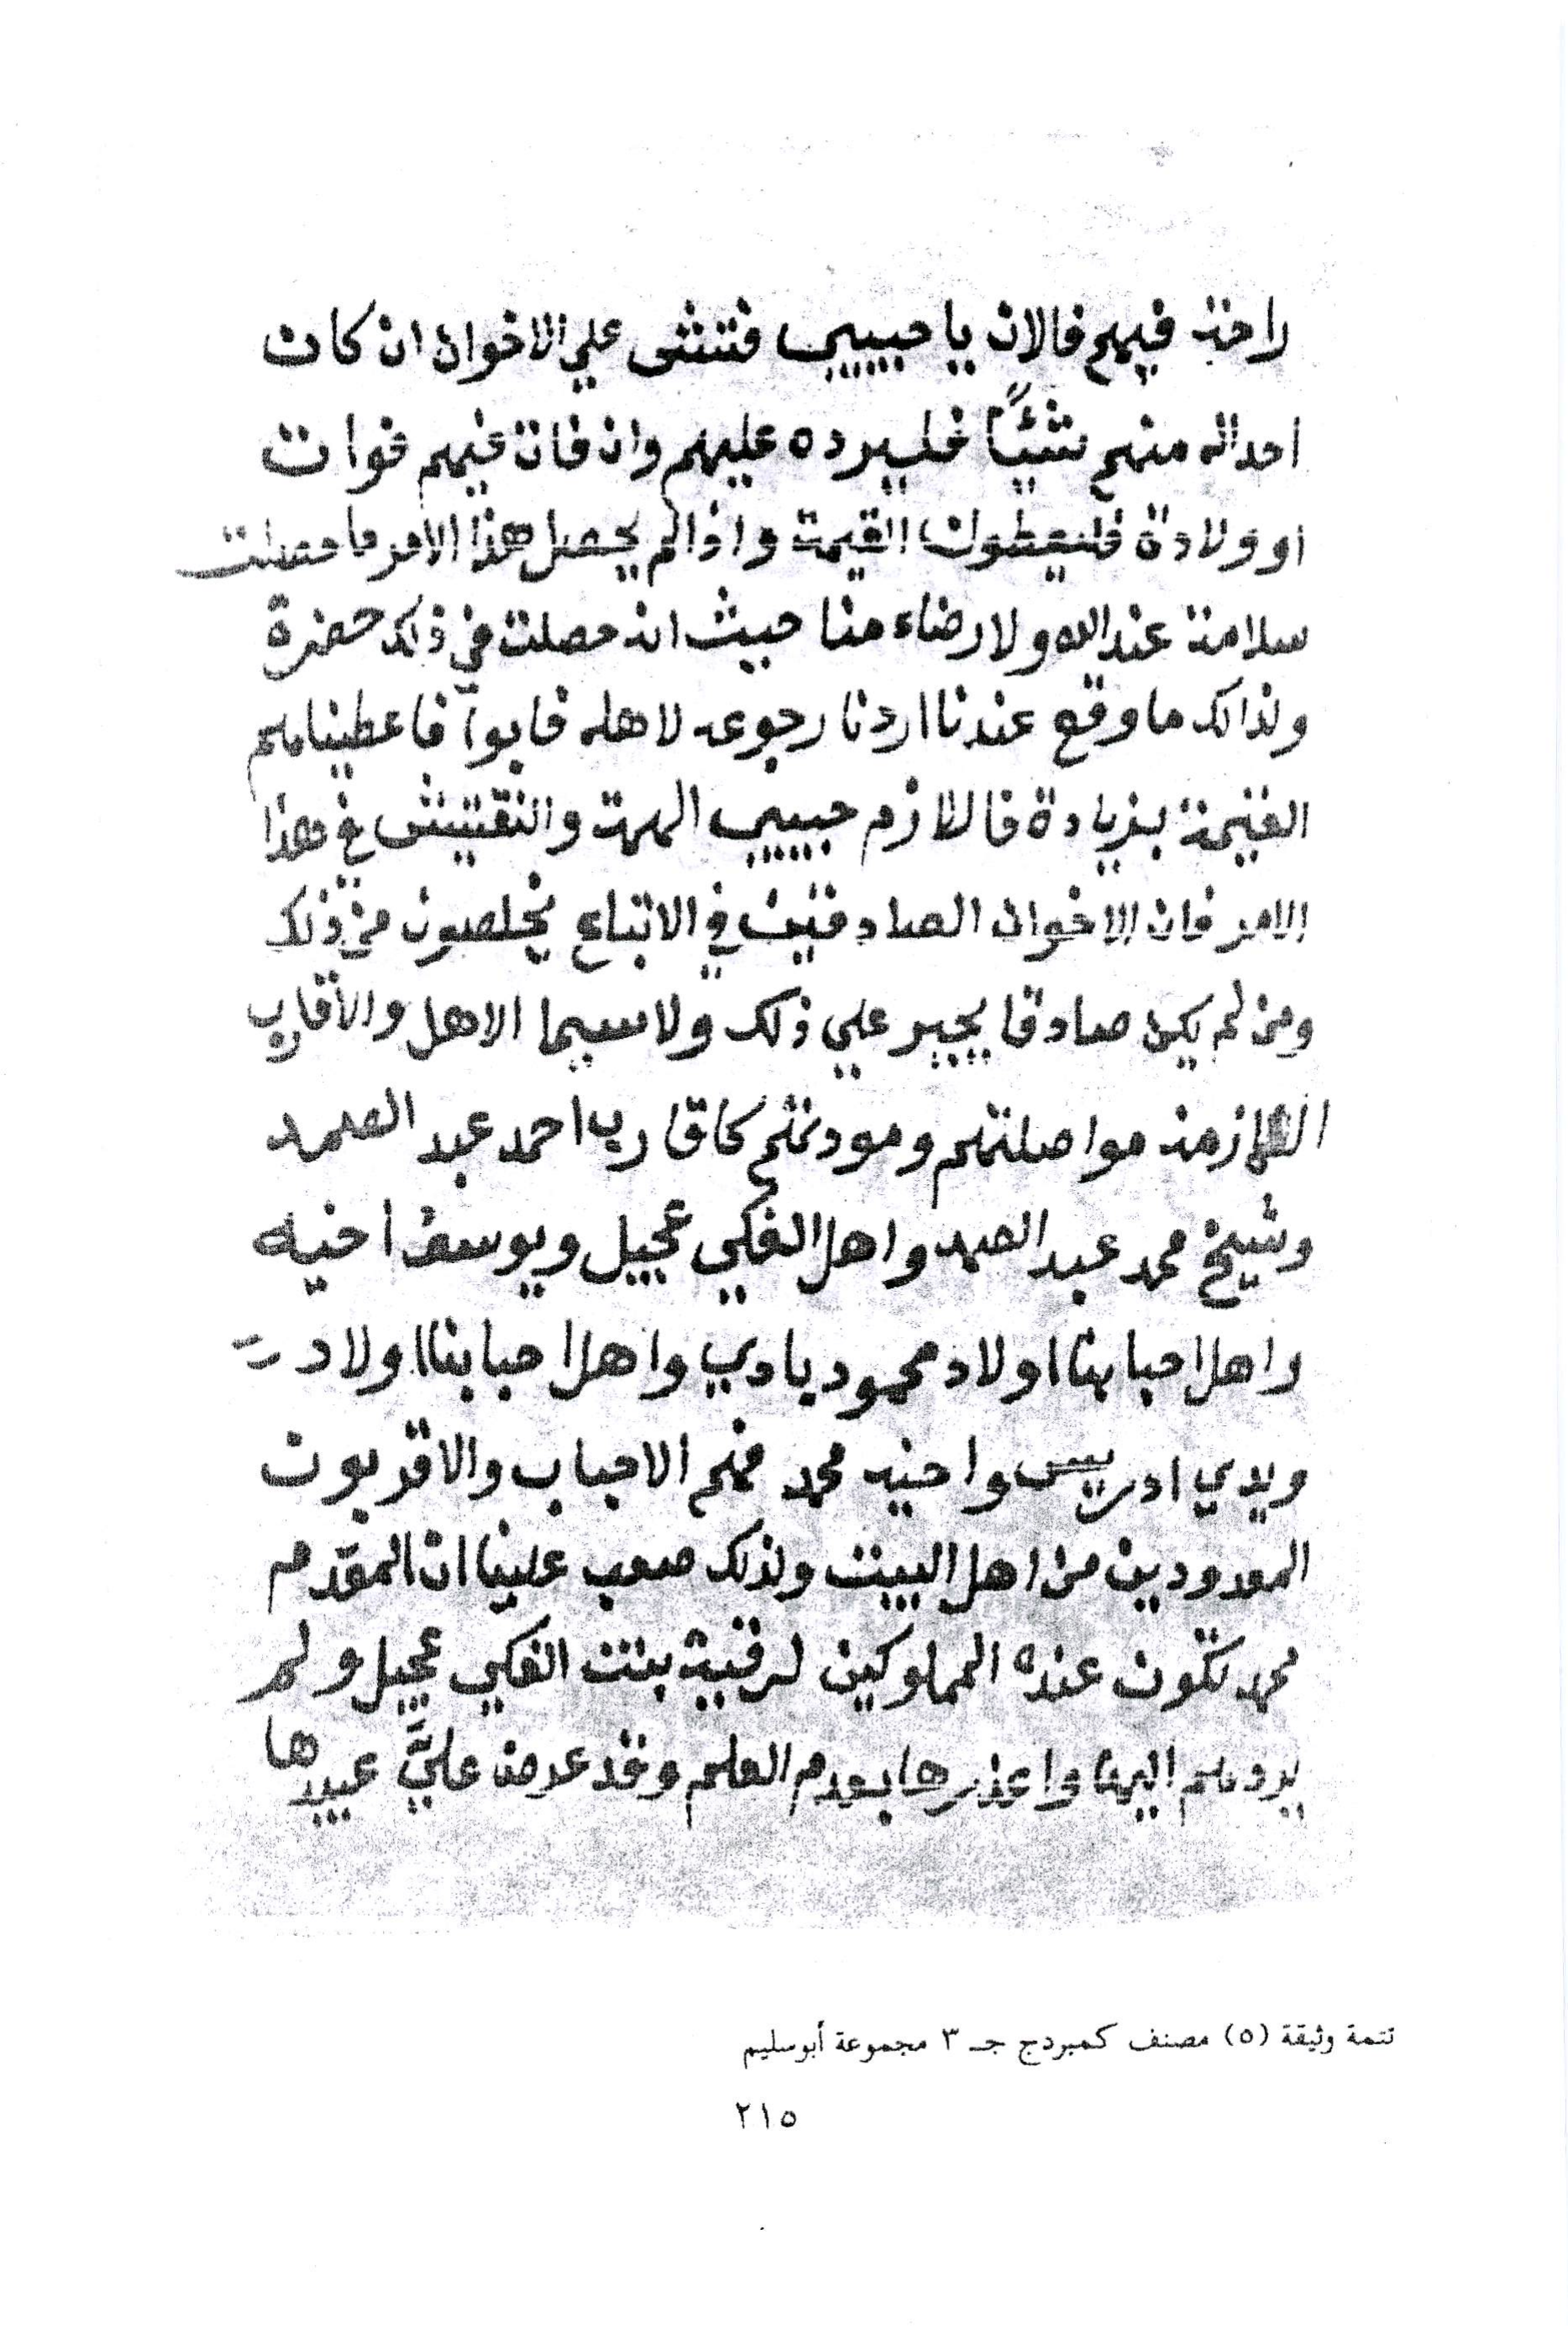 راحة فيهم فالان يا حبيبي فتش علي الاخوان ان كان
احد اله منهم شئًا فليرده عليهم وان فات فيهم فوات
او ولادة فليعطوك القيمة واذا لم يحصل هذا الامر ما حصلت
سلامة عند الله ولا رضاء منا حيث انه حصلت في ذلك حضرة
ولذالك ما وقع عندنا اردنا رجوعه لاهله فابوا فاعطيناهم
القيمة بزيادة فاللازم حبيبي الهمة والتفتيش في هذا
الامر فان الاخوان الصادقين في الاتباع يخلصون من ذلك
ومن لم يكن صادقا يجبر علي ذلك ولا سيما الاهل والأقارب
اللازمة مواصلتهم ومودتهم كاقارب احمد عبد الصمد
وشيخ محمد عبد الصمد واهل الفكي عجيل ويوسف أخيه
واهل احبابنا اولاد محمود يادي واهل احبابنا اولاد
ويدي ادريس واخيه محمد فهم الاحباب والاقربون
المعدودين من اهل البيت ولذلك صعب علينا ان المقدم
محمد تكون عنده المملوكين لرقية بنت الفكي عجيل ولم
يردهم اليها واعذرها بعدم العلم وقد عرضت عليَّ عبيدها
تتمة وثيقة (٥) مصنف كمبردج جـ ٣ مجموعة أبوسليم
٢١٥